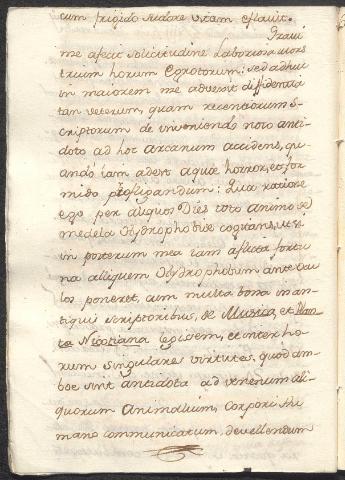 cum frigido sudore vitam efflavit.
Gravi
me afecit solicitudine laboriosa mors
trium horum Egrotorum: sed adhuc
in maiorem me aduexit diffidentia
tan veterum, quam recentiorum S-
criptorum de inveniendo noto anti-
doto ad hoc arcanum accidens, qu-
ando iam adest aquæ horror, et for-
mido profligandum: Qua ratione
ego per aliquos Dies toto animo de
medela Hydrophobiæ cogitans, ut si
in posterum mea iam aflicta fortu
na alliquem Hydrophobum ante ocu
los poneret, cum multa bona in an-
tiquis scriptoribus, de Musica, et Plan-
ta Nicotiana legissem, et inter ho-
rum singulares virtutes, quod am-
boe sint antidota ad venenum ali-
quorum Animalium, corpori hu
mano communicatum, devellendum